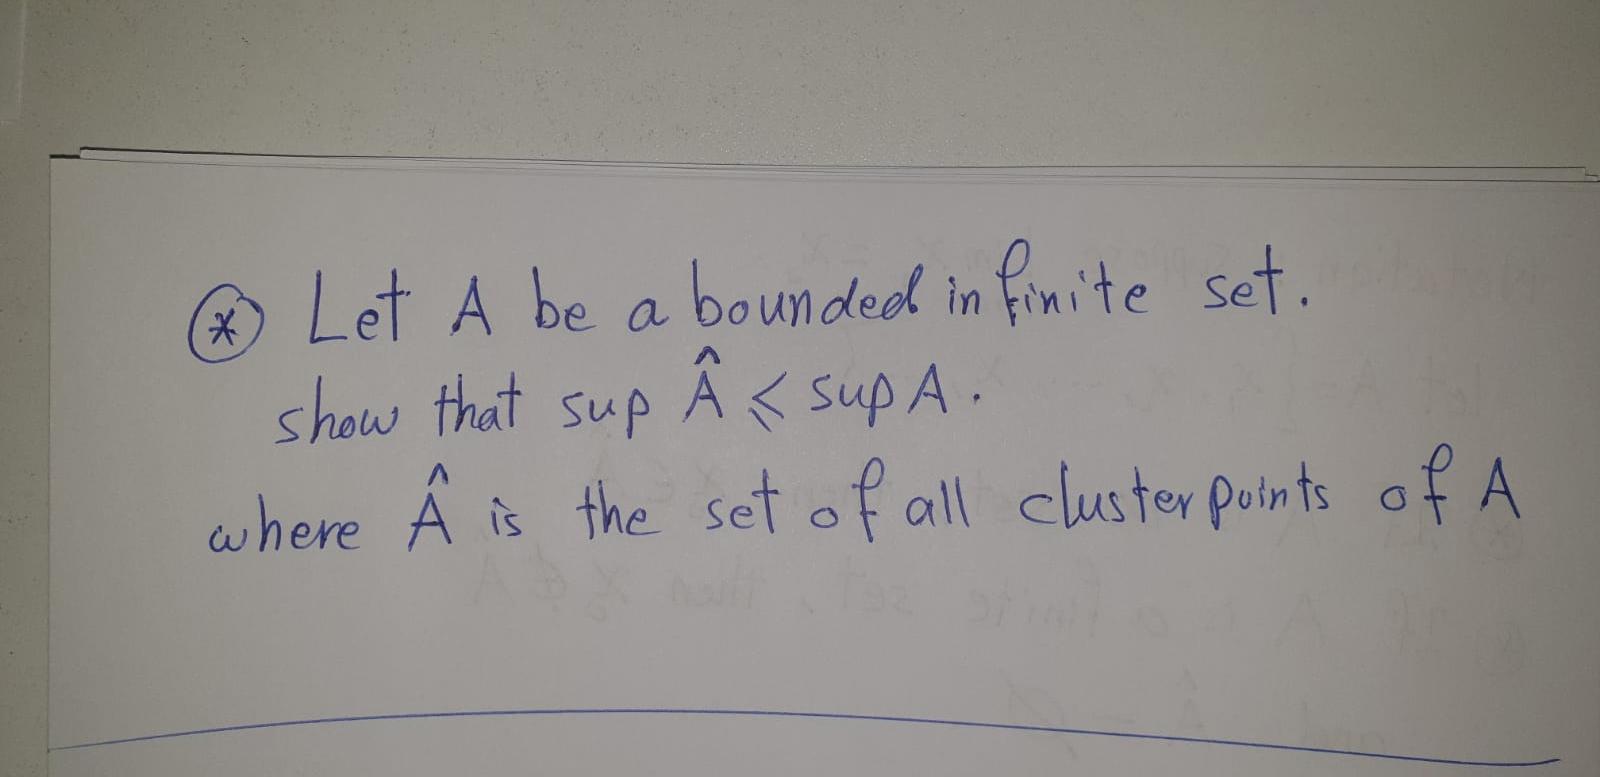 ⊛ Let A be a bounded infinite set.
show that sup Â ⩽ sup A.
where Â is the set of all cluster points of A